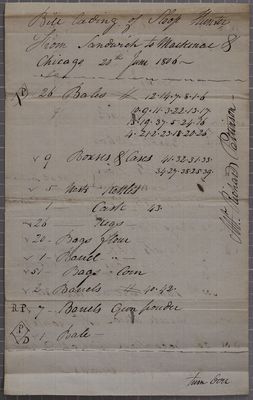 Bill lading of Sloop
From Sandwich to Mackinac &
Chicago 20th June 1806
26 Bales # 12.14.7.8.1.6
10.9.11.3.22.13.17
15.19.37.5.24.16
4.21.2.23.18.20.26
9 Boxes & Cases 41.32.31.33.
34.27.28.25.39
5 nests kettles
1 Cask 43.
26 Kegs
20 Bags flour
1 Barrel "
51 Bags Corn
2 Barrels # 40.42.
R.P. 7 Barrels Gun powder
1 Bale
turn over
Mr. Richard